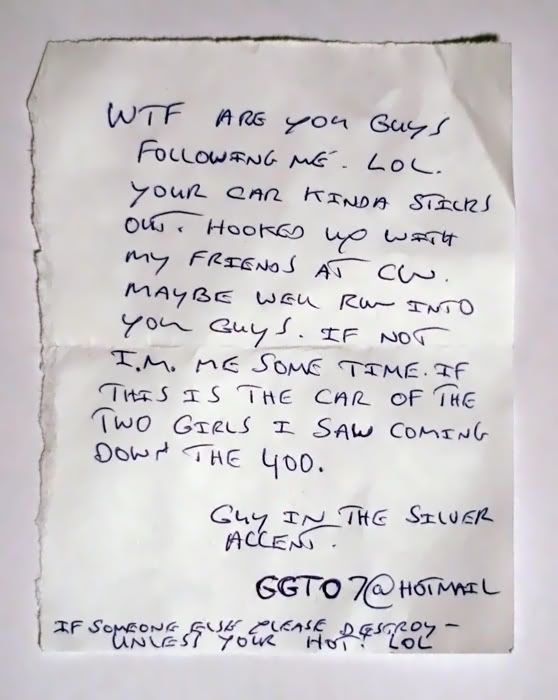 WTF ARE YOU GUYS
FOLLOWING ME. LOL.
YOUR CAR KINDA STICKS
OUT. HOOKED UP WITH
MY FRIENDS AT CW.
MAYBE WELL RUN INTO
YOU GUYS. IF NOT
I.M. ME SOME TIME. IF
THIS IS THE CAR OF THE
TWO GIRLS I SAW COMING
DOWN THE 400.
GUY IN THE SILVER
ACCENT.
GGTO7@HOTMAIL
IF SOMEONE ELSE PLEASE DESTROY -
UNLESS YOUR HOT! LOL